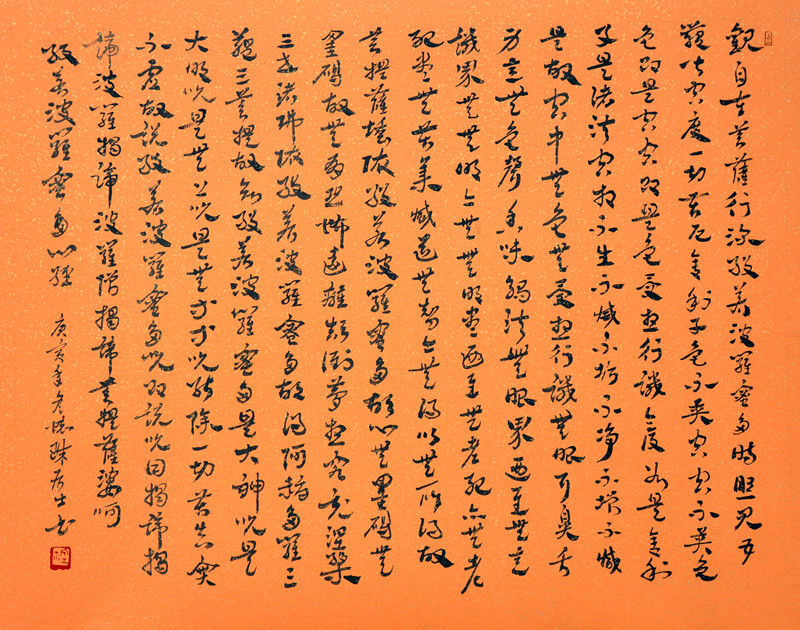 觀自在菩薩行深般若波羅蜜多時照見五
蘊皆空度一切苦厄舍利子色不異空空不異色
色即是空空即是色受想行識亦復如是舍利
子是諸法空相不生不滅不垢不淨不增不減
是故空中無色無受想行識無眼耳鼻舌
身意無色聲香味觸法無眼界乃至無意
識界無無明亦無無明盡乃至無老死亦無老
死盡無苦集滅道無智亦無得以無所得故
菩提薩埵依般若波羅蜜多故心無罣礙無
罣礙故無有恐怖遠離顛倒夢想究竟涅槃
三世諸佛依般若波羅蜜多故得阿耨多羅三
藐三菩提故知般若波羅蜜多是大神咒是
大明咒是無上咒是無等等咒能除一切苦真實
不虛故說般若波羅蜜多咒即說咒曰揭諦揭
諦波羅揭諦波羅僧揭諦菩提薩婆訶
般若波羅蜜多心經 庚寅年冬珠居士書